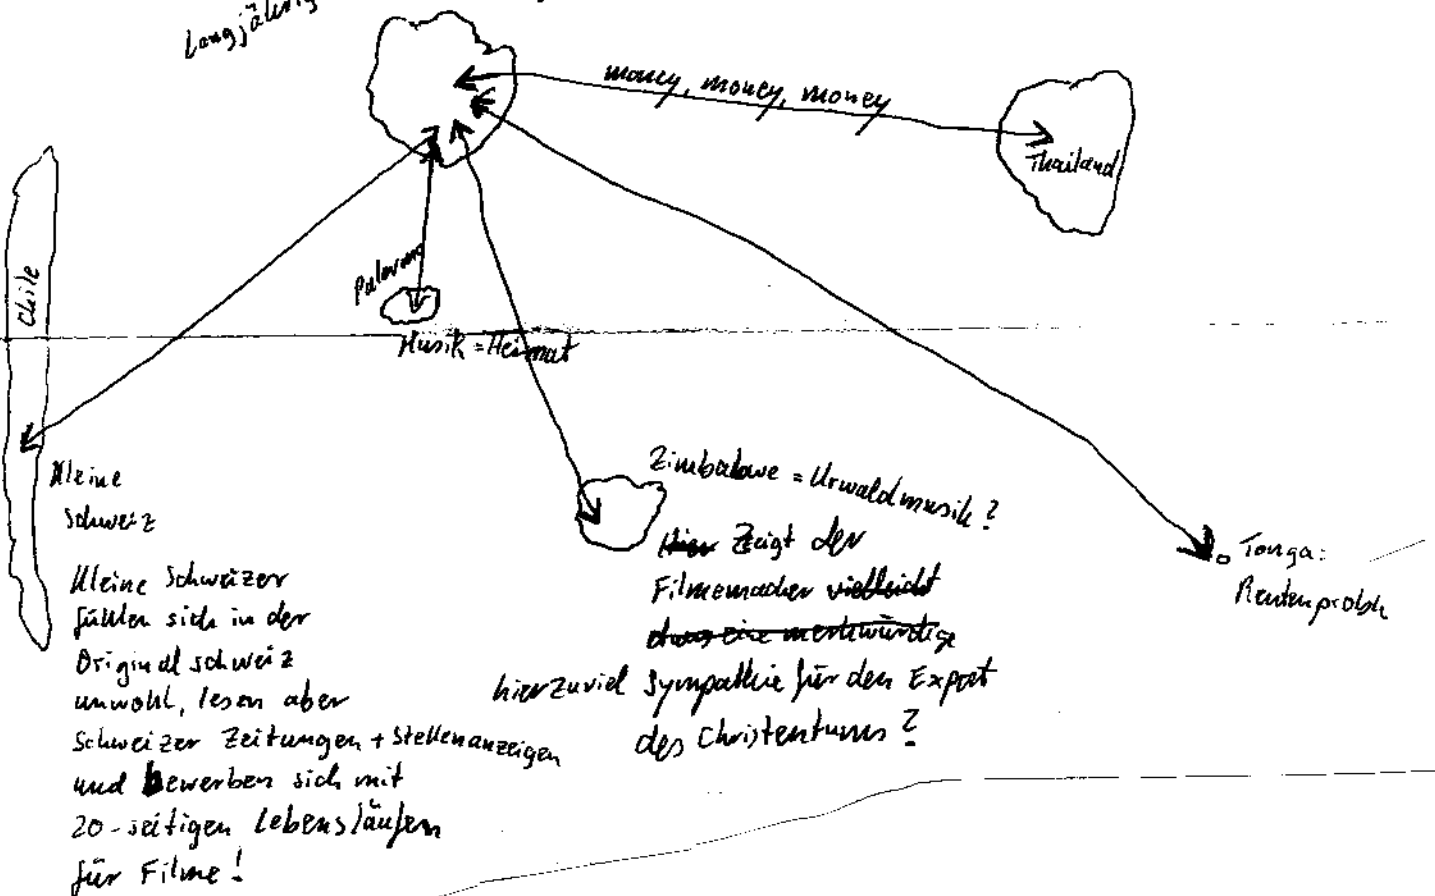 Langjährig
money, money, money
Thailand
Chile
Palermo
Musik = Heimat
Kleine
Schweiz
Kleine Schweizer
fühlen sich in der
Originalschweiz
unwohl, lesen aber
Schweizer Zeitungen + Stellenanzeigen
und bewerben sich mit
20-seitigen Lebensläufen
für Filme!
Zimbabwe = Urwaldmusik?
Hier Zeigt der
Filmemacher vielleicht
etwas eine merkwürdige
hier zuviel Sympathie für den Export
des Christentums?
Tonga:
Rentenprobl.